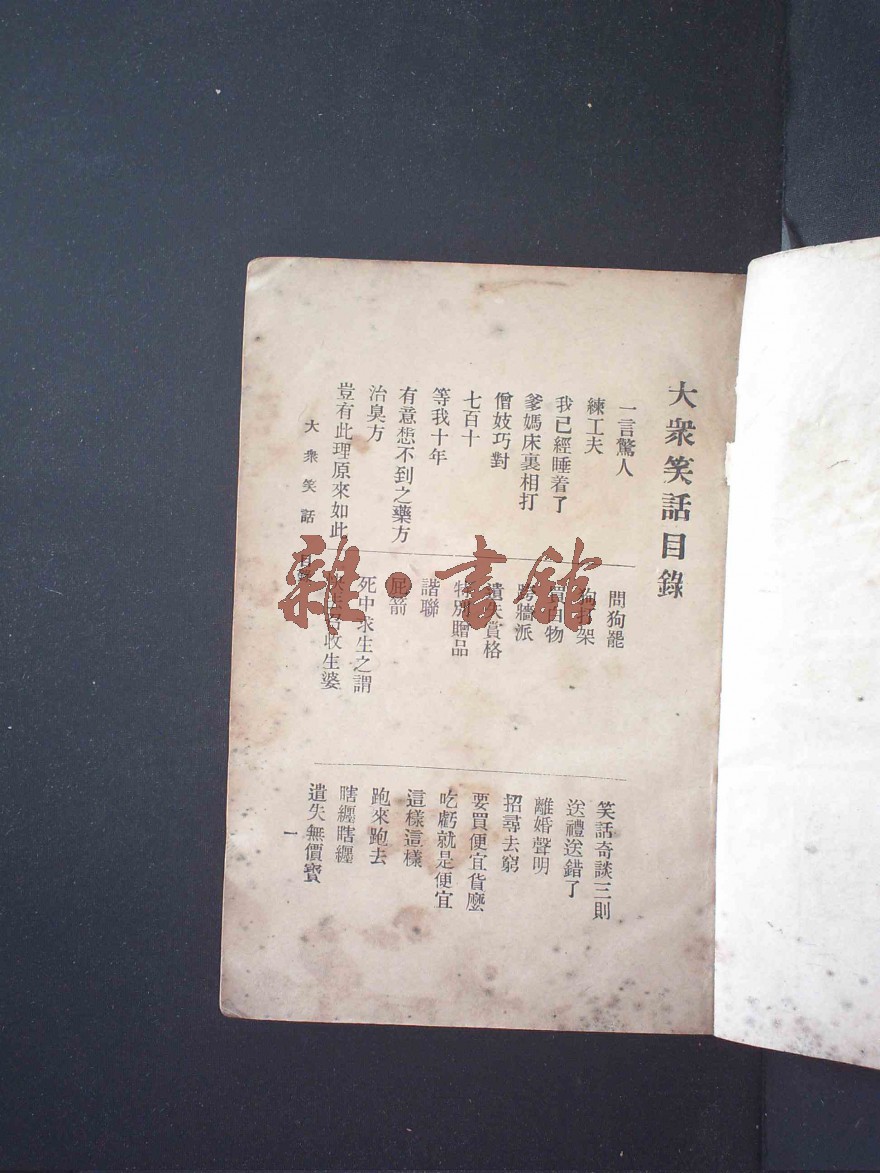 大衆笑話目錄
一言驚人
練工夫
我已經睡着了
爹媽床裏相打
僧妓巧對
七百十
等我十年
有意想不到之藥方
治臭方
豈有此理原來如此
問狗罷
狗打架
買白物
跨牆派
遺失賞格
特別贈品
諧聯
屁箭
死中求生之謂
收生婆
笑話奇談三則
送禮送錯了
離婚聲明
招尋去窮
要買便宜貨麽
吃虧就是便宜
這樣這樣
跑來跑去
瞎纏瞎纏
遺失無價寶
大衆笑話 目
一
雜·書館